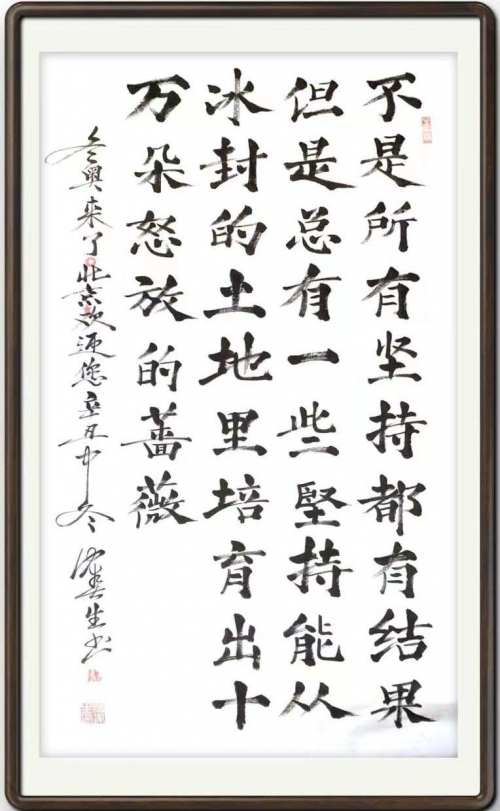 不是所有坚持都有结果
但是总有一些堅持能从
冰封的土地里培育出十
万朵怒放的薔薇
冬奥来了北京欢迎您辛丑中冬 生书